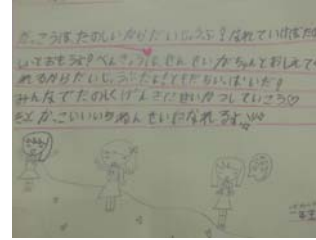 がっこうは、たのしいからだいじょうぶ?なれていけばたの
しいとおもうよ?べんきょうは、せんせいがちゃんとおしえてく
れるからだいじょうぶだよ!ともだちいっぱいだ?
みんなでたのしくげんきにせいかつしていこう♡
きっとかっこいいいちねんせいになれるよ
一年生